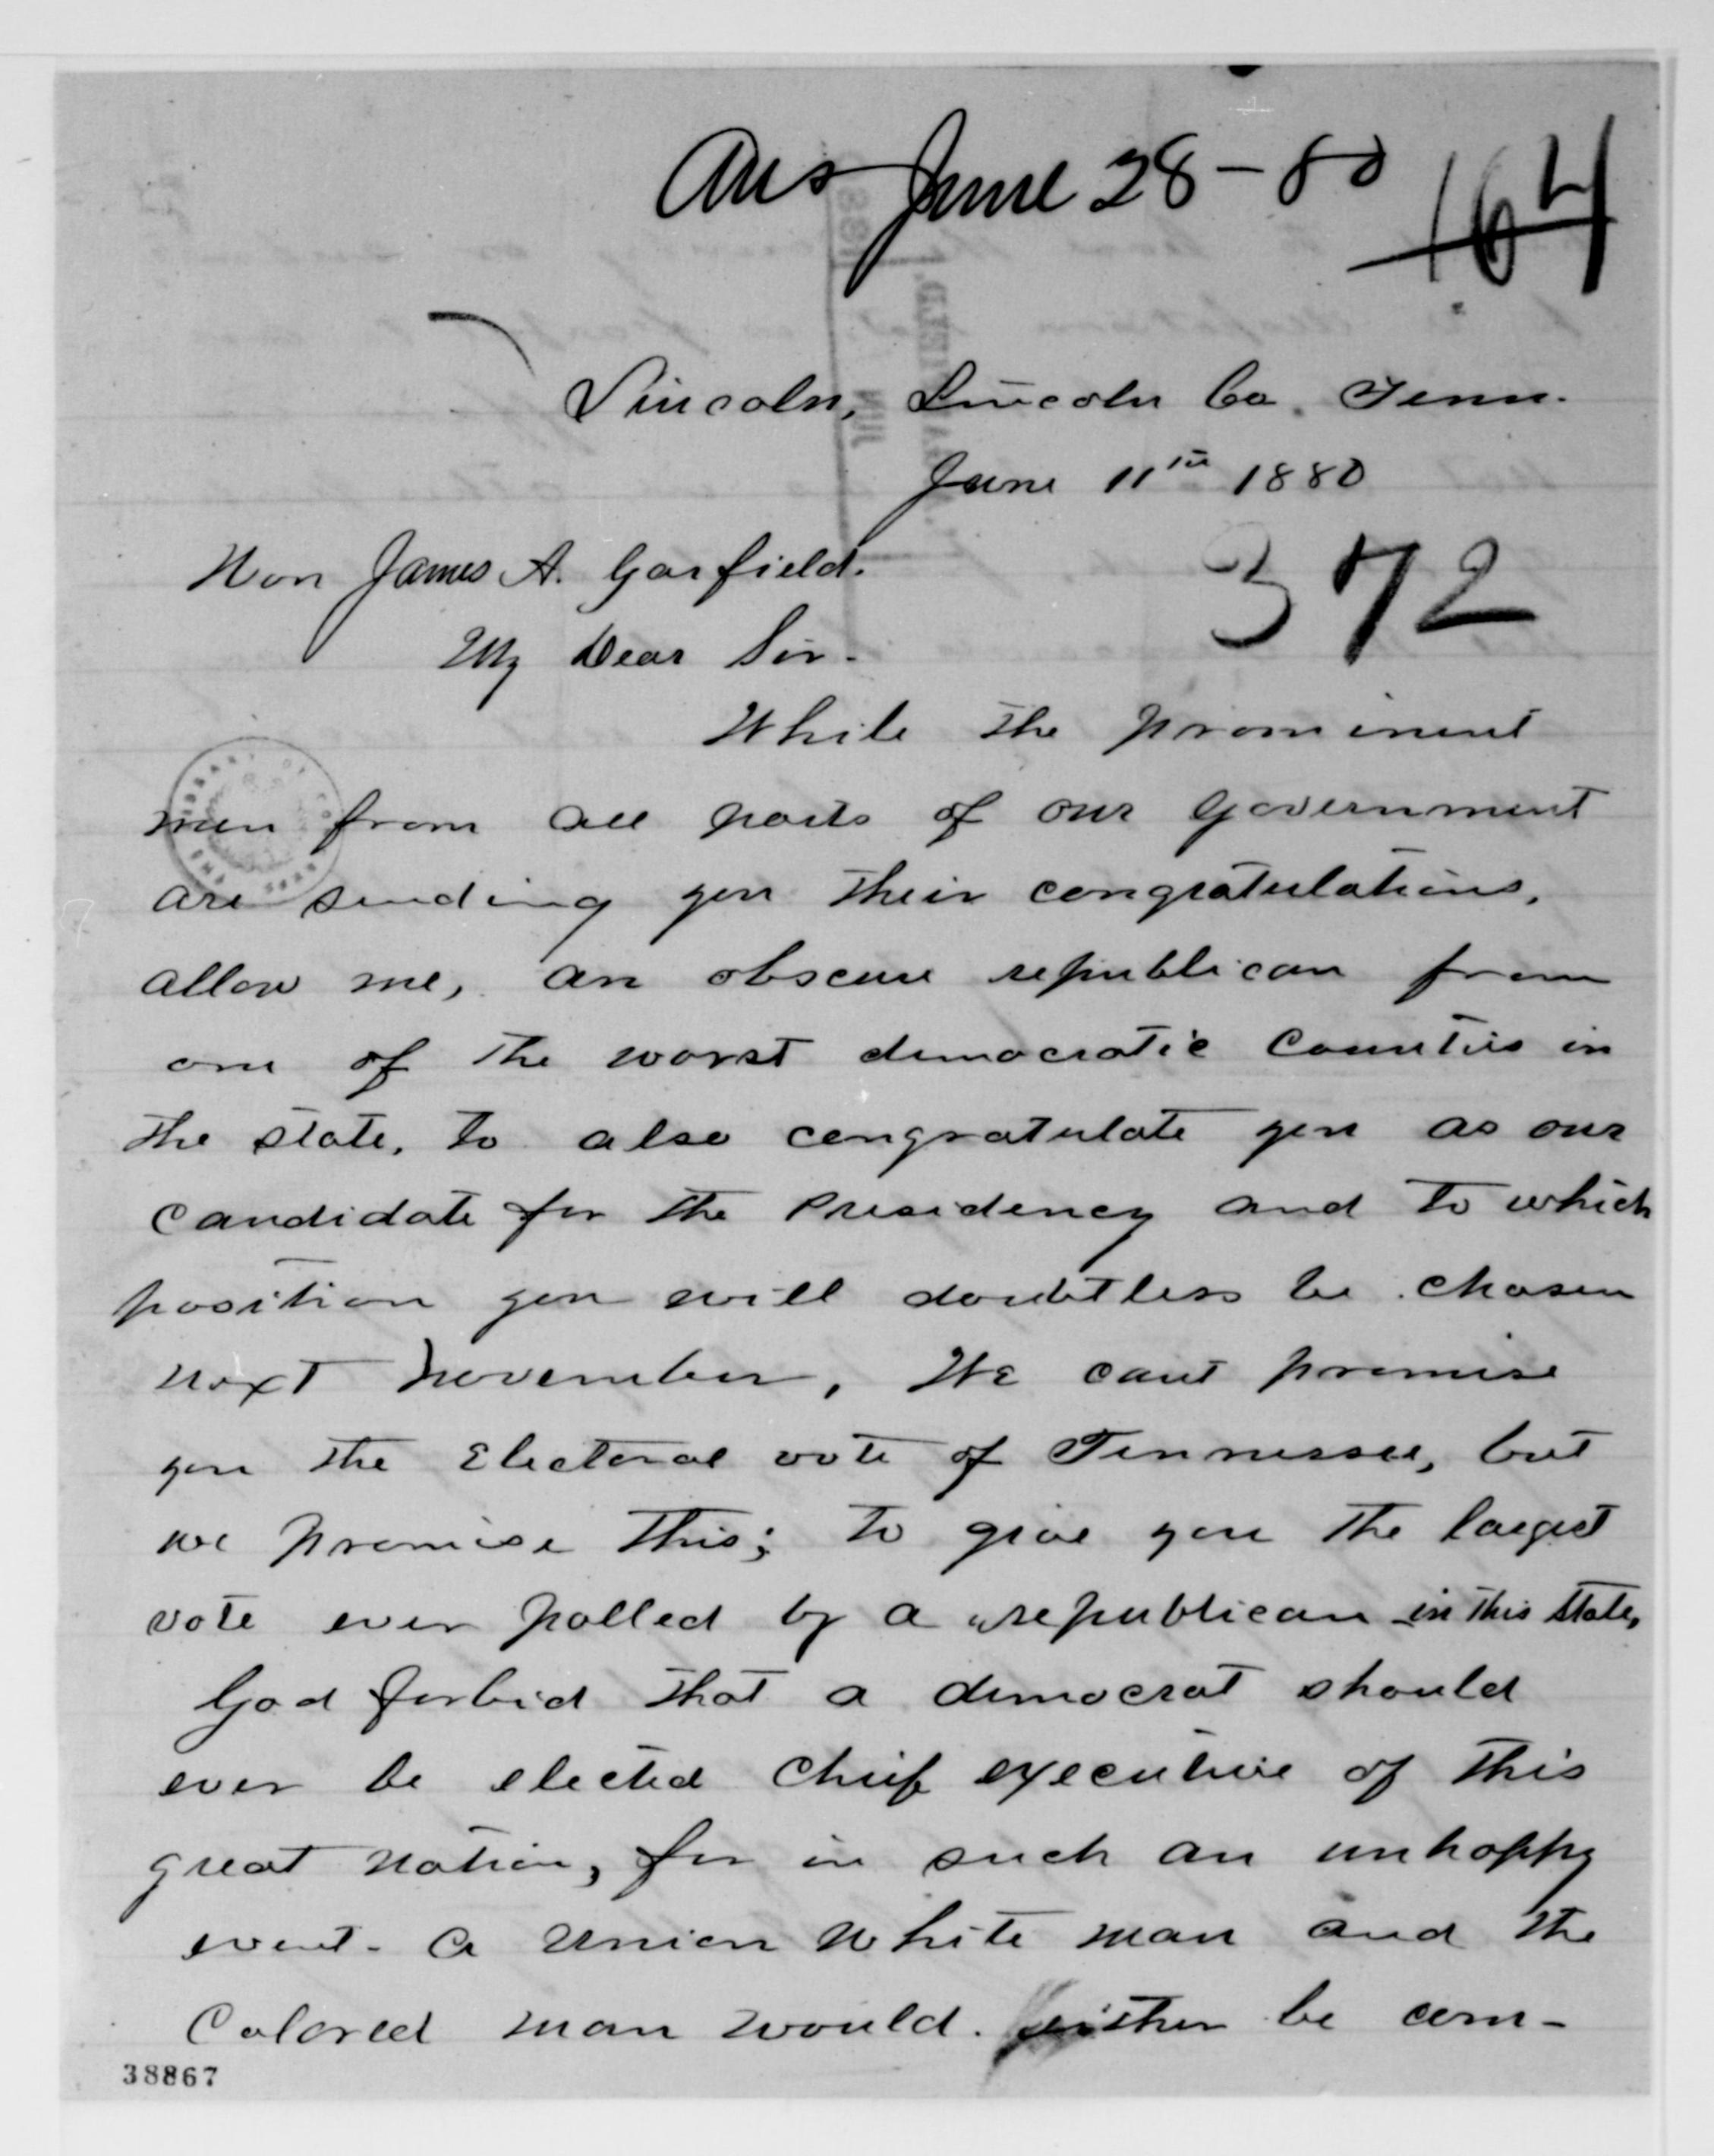 Ans June 28-80
164
Lincoln, Lincoln Co. Tenn.
June 11th 1880
Hon James A. Garfield.
372
My Dear Sir.
While the prominent
men from all parts of our Government
are sending you their congratulations,
allow me, an obscure republican from
one of the worst democratic Counties in
the state, to also congratulate you as our
candidate for the Presidency and to which
position you will doubtless be chosen
next November, We cant promise
you the Electoral vote of Tennessee, but
we promise this; to give you the largest
vote ever polled by a republican in this state,
God forbid that a democrat should
ever be elected Chief executive of this
great nation, for in such an unhappy
event - a Union White man and the
Colored man would. either be com-
38867